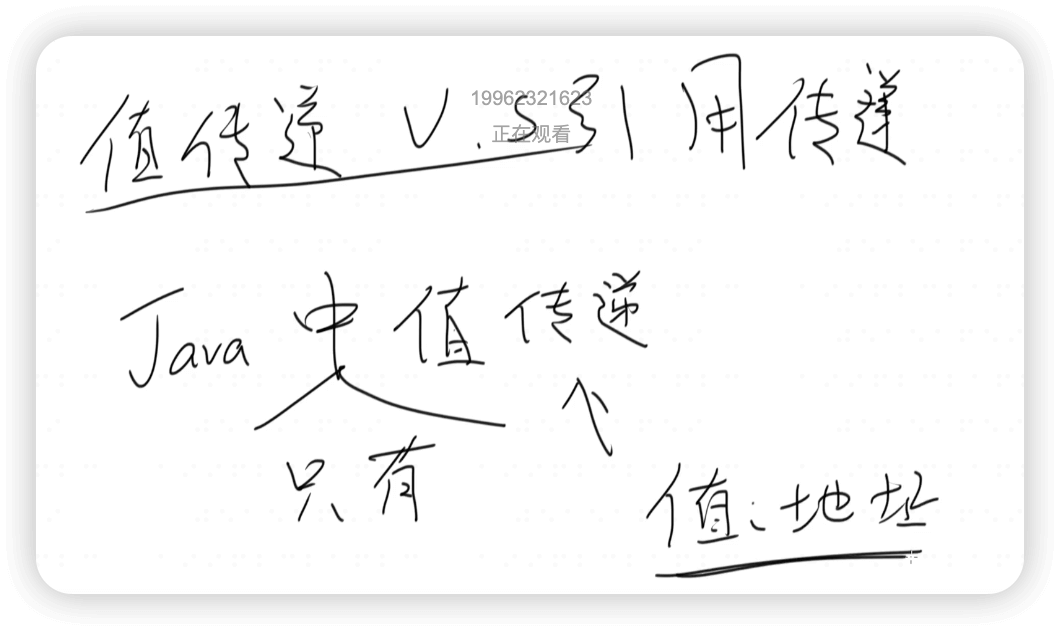 值传递 V.S 引用传递
19962321623
正在观看
Java 中 值传递
只有
值:地址